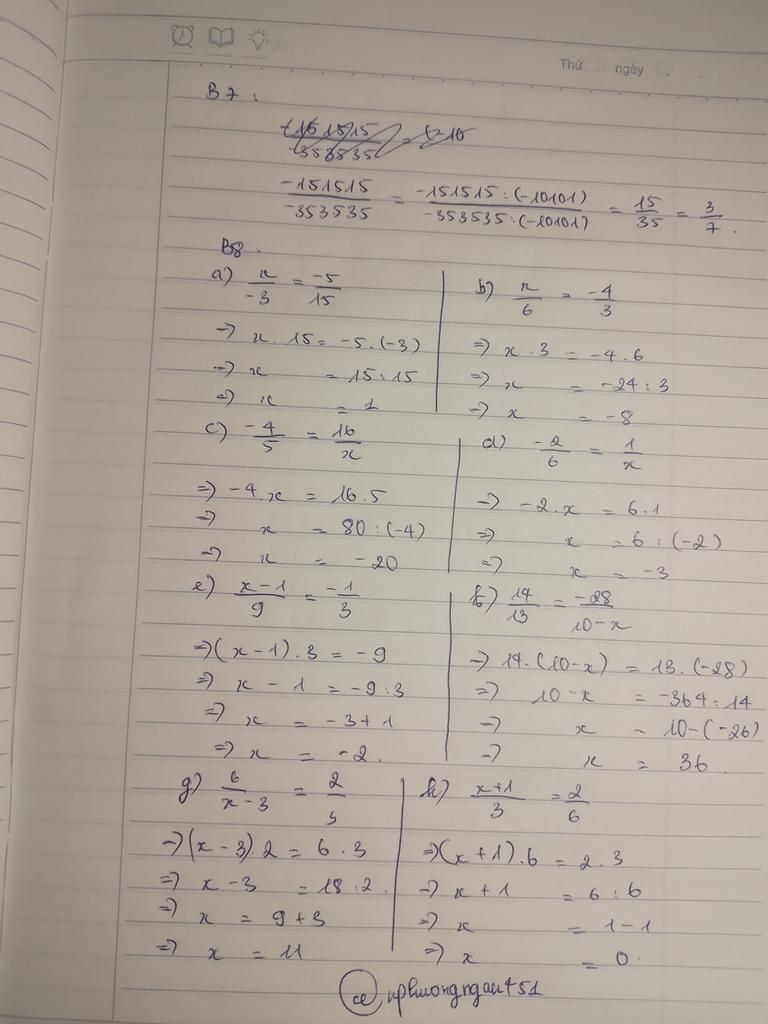 Thứ ngày
B7:
-151515/-353535 = -151515:(-10101)/-353535:(-10101) = 15/35 = 3/7.
B8.
a) x/-3 = -5/15
=> x.15 = -5.(-3)
=> x = 15:15
=> x = 1
b) x/6 = -4/3
=> x.3 = -4.6
=> x = -24:3
=> x = -8
c) -4/5 = 16/x
=> -4.x = 16.5
=> x = 80:(-4)
=> x = -20
d) -2/6 = 1/x
=> -2.x = 6.1
=> x = 6:(-2)
=> x = -3
e) x-1/9 = -1/3
=> (x-1).3 = -9
=> x-1 = -9:3
=> x = -3+1
=> x = -2.
f) 14/13 = -28/10-x
=> 14.(10-x) = 13.(-28)
=> 10-x = -364:14
=> x = 10-(-26)
=> x = 36
g) 6/x-3 = 2/3
=> (x-3).2 = 6.3
=> x-3 = 18:2.
=> x = 9+3
=> x = 11
h) x+1/3 = 2/6
=> (x+1).6 = 2.3
=> x+1 = 6:6
=> x = 1-1
=> x = 0.